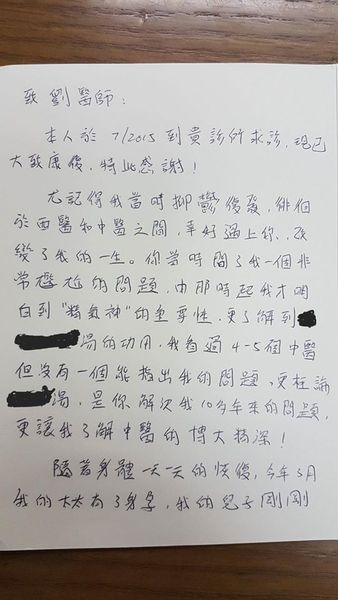 致 劉醫師：
本人於 7/2015 到貴診所求診，現已
大致康復，特此感謝！
尤記得我當時抑鬱復發，徘徊
於西醫和中醫之間，幸好遇上你，改
變了我的一生。你當時問了我一個非
常尷尬的問題，由那時起我才明
白到"精氣神"的重要性，更了解到
湯的功用，我看過 4-5 個中醫
但沒有一個能指出我的問題，更枉論
湯，是你解決我10多年來的問題，
更讓我了解中醫的博大精深！
隨著身體一天一天的恢復，今年5月
我的太太有了身孕，我的兒子剛剛